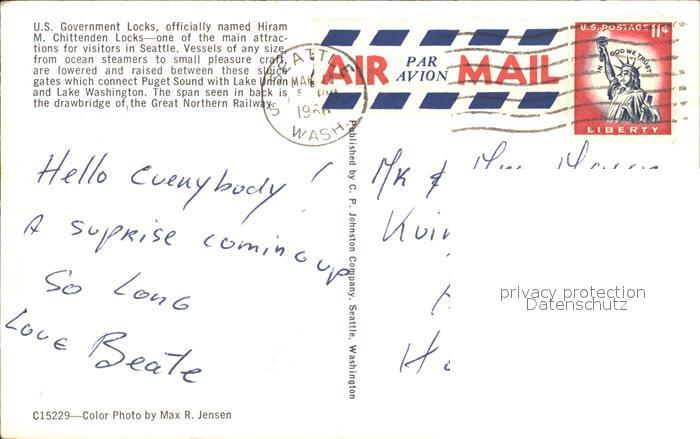 U.S. Government Locks, officially named Hiram
M. Chittenden Locks—one of the main attrac-
tions for visitors in Seattle. Vessels of any size,
from ocean steamers to small pleasure craft,
are lowered and raised between these sluice
gates which connect Puget Sound with Lake Union
and Lake Washington. The span seen in back is
the drawbridge of the Great Northern Railway.
SEATTLE
MAR
WASH.
AIR PAR AVION MAIL
U.S. POSTAGE 11¢
IN GOD WE TRUST
LIBERTY
Hello Everybody!
A suprise coming up
So Long
Love Beate
Published by C. P. Johnston Company, Seattle, Washington
Mr &
privacy protection
Datenschutz
C15229—Color Photo by Max R. Jensen